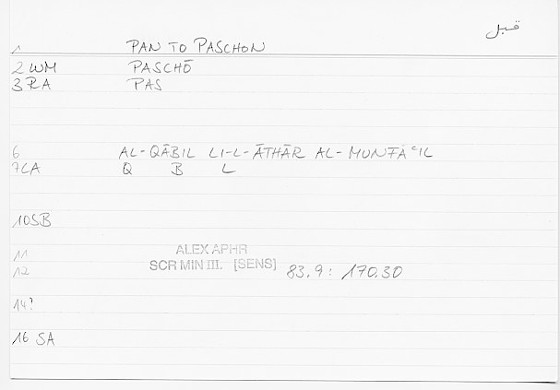 قبل
1 PAN TO PASCHON
2 WM PASCHŌ
3 RA PAS
6 AL-QĀBIL LI-L-ĀTHĀR AL-MUNFAʿIL
7 LA Q B L
10 SB
11 ALEX APHR
12 SCR MIN III. [SENS] 83.9: 170.30
14?
16 SA